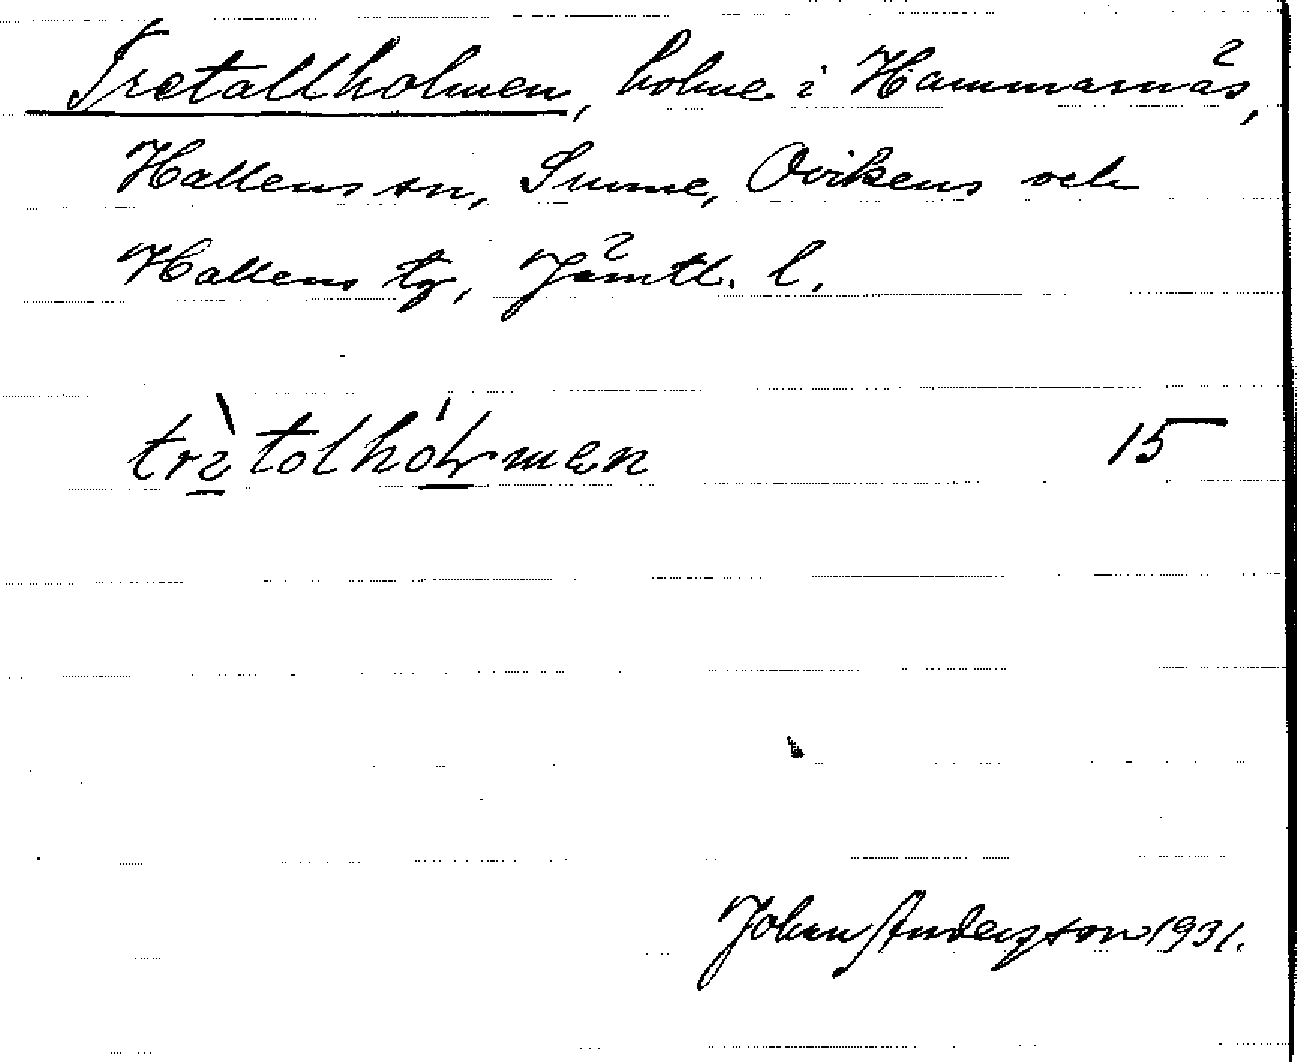 Tretallholmen, holme i Hammarnäs,
Hallens sn, Sunne, Ovikens och
Hallens tg, Jämtl. l.
15
Johan Andersson 1931.